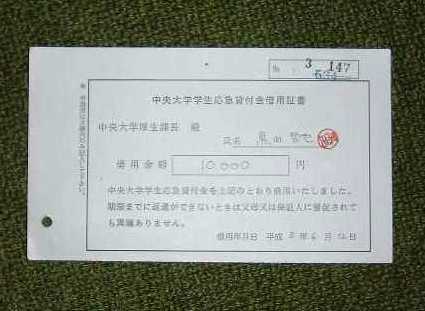 No. 3 147
中央大学学生応急貸付金借用証書
中央大学厚生課長 殿
氏名
借用金額 10,000 円
中央大学学生応急貸付金を上記のとおり借用いたしました。
期限までに返還ができないときは父母又は保証人に督促されて
も異議ありません。
借用年月日 平成 年 月 日